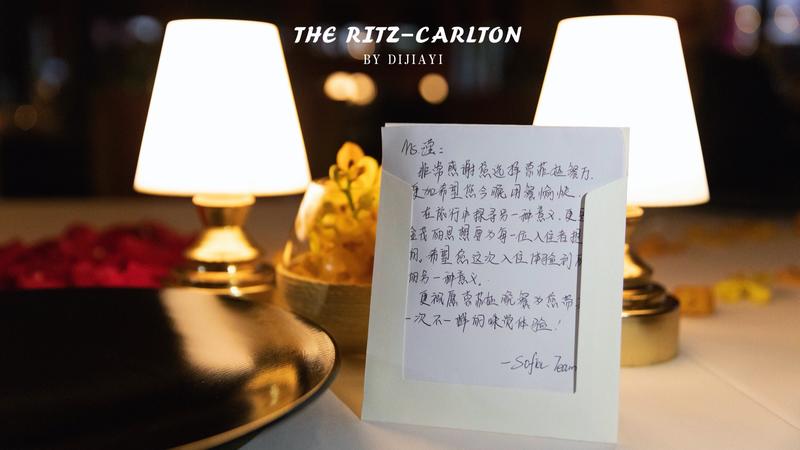 THE RITZ-CARLTON
BY DIJIAYI
Ms. 滢：
非常感谢您选择索菲极餐厅.
更加希望您今晚用餐愉快.
在旅行中探寻另一种意义.更
金茂的思想愿为每一位入住者
希望您这次入住体验到
的另一种意义.
更祝愿索菲极晚餐为您带
一次不一样的味觉体验!
—Sofia Team